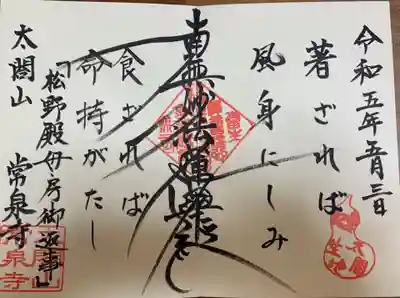 令和五年五月三日
著ざれば
風身にしみ
南無妙法蓮華経
食ざれば
命持がたし
「松野殿女房御返事」
太閤山 常泉寺
常泉寺